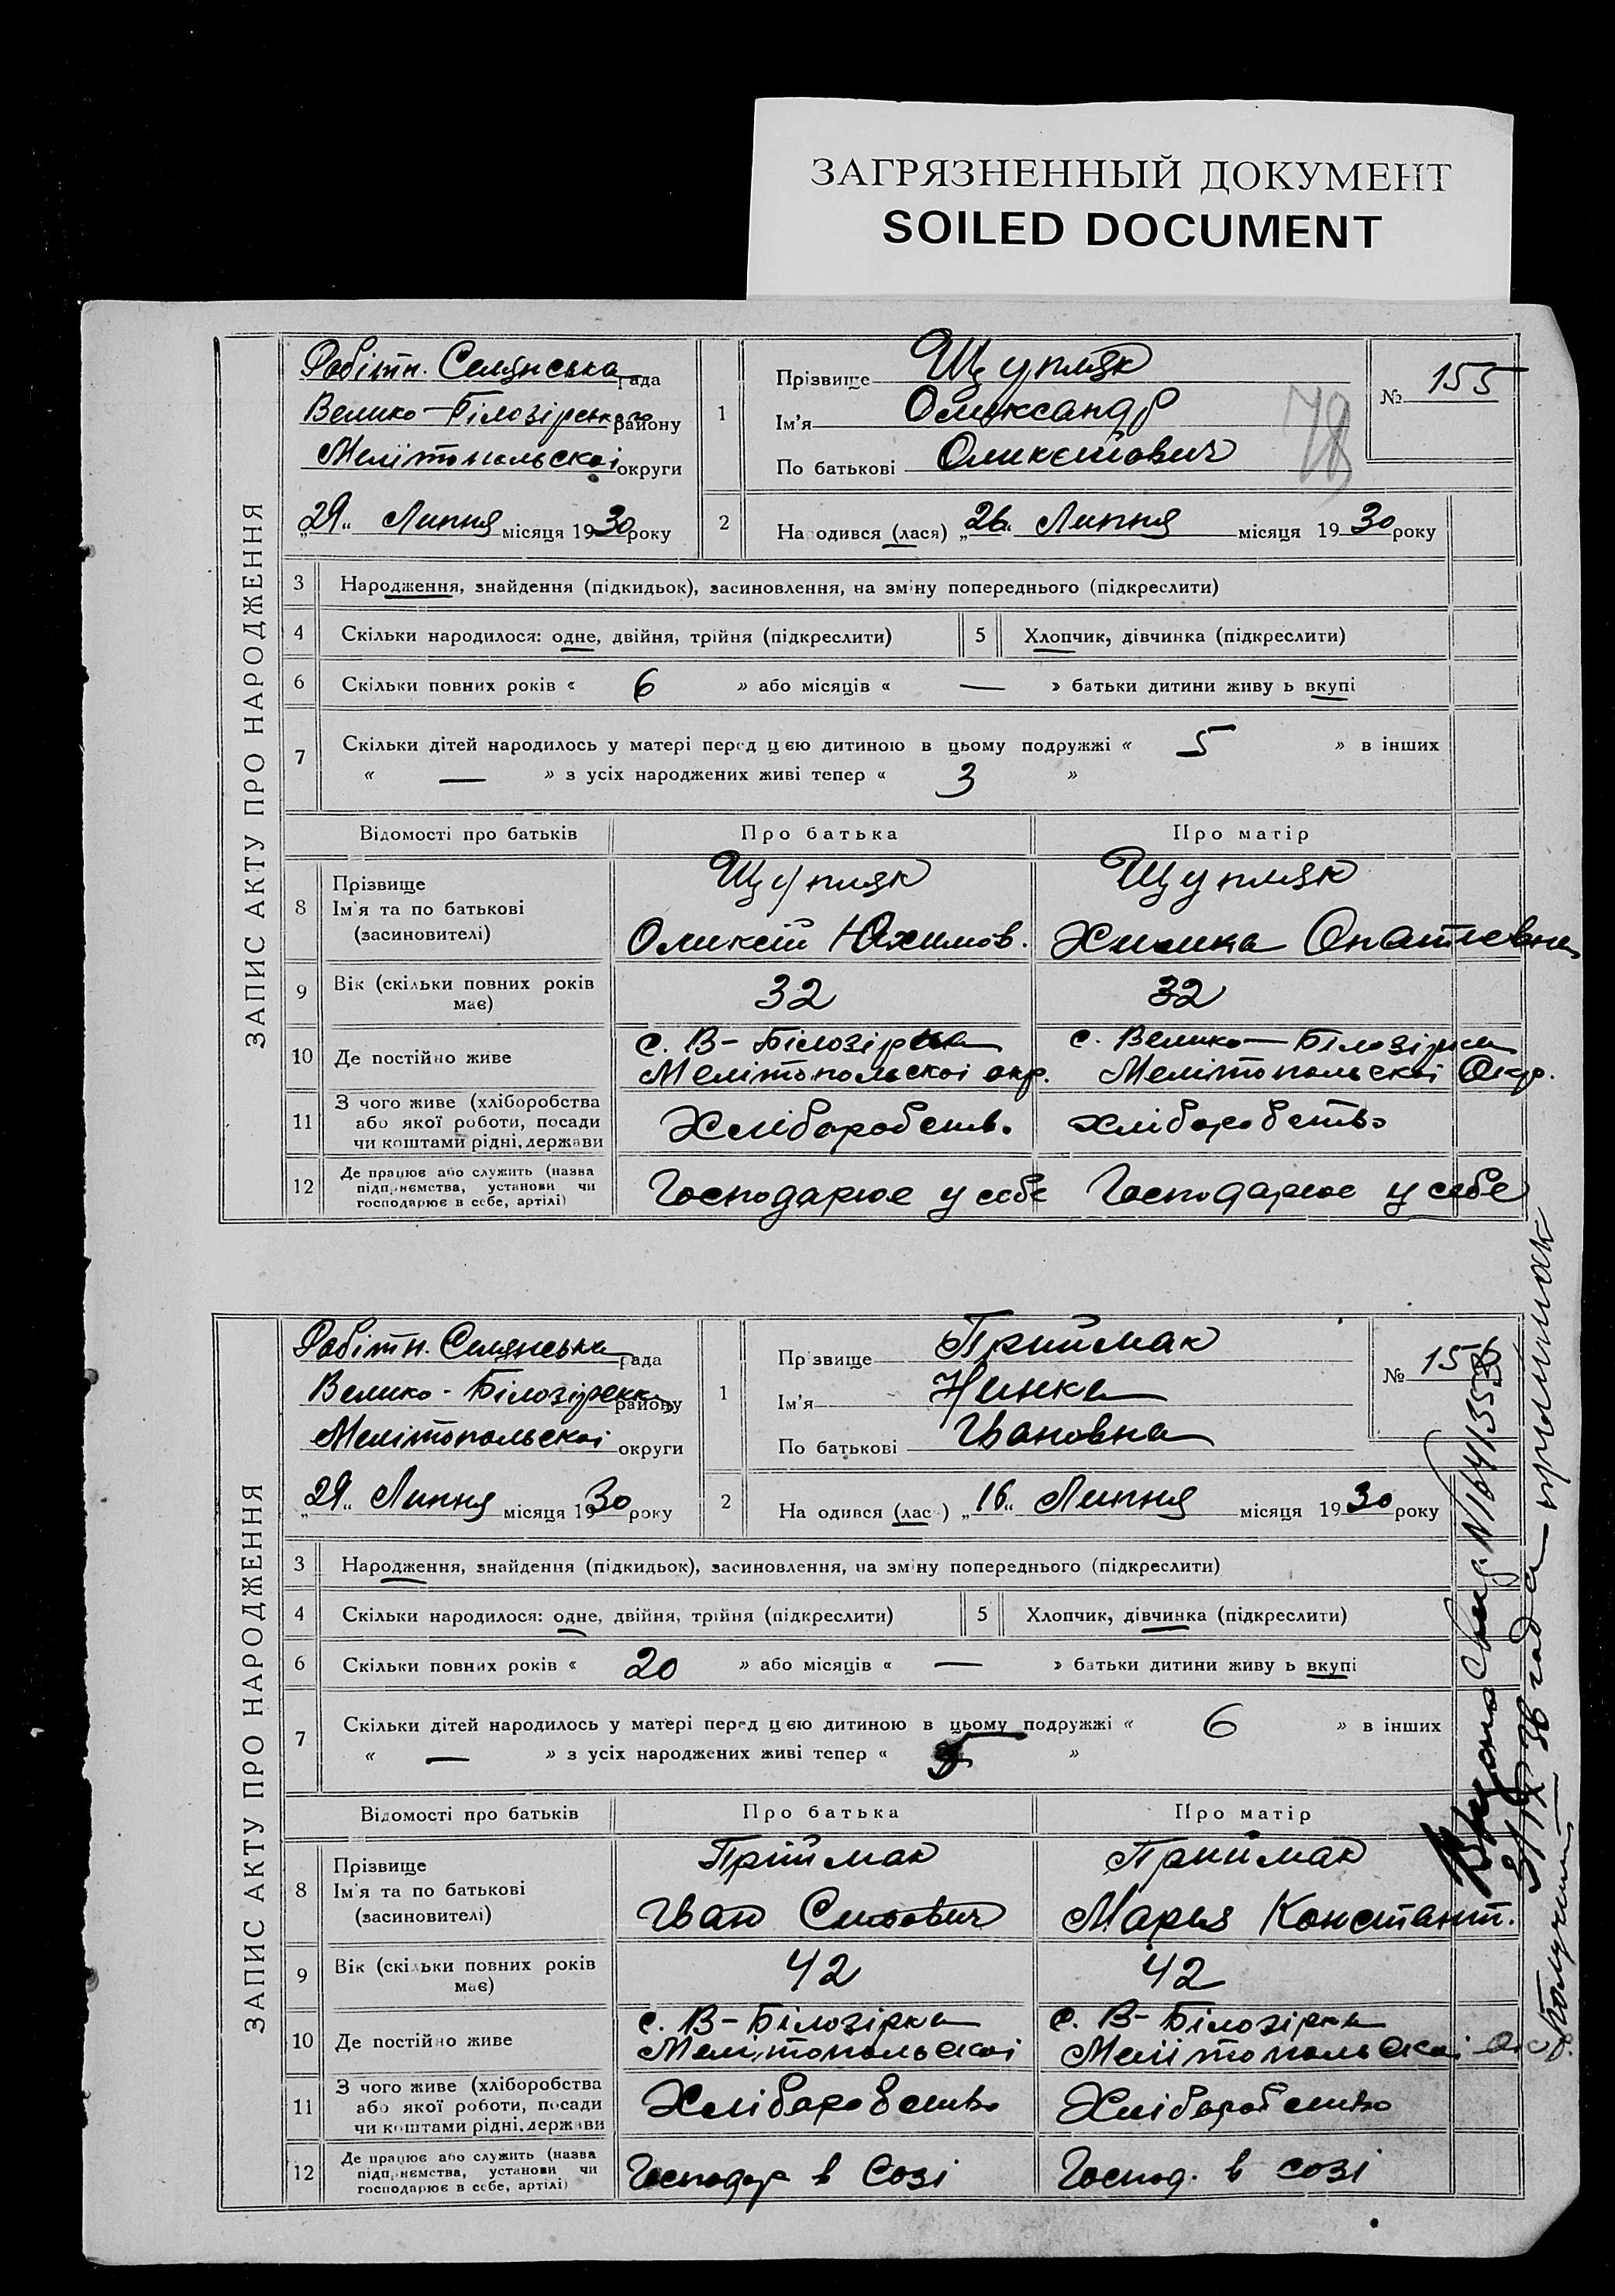 ЗАГРЯЗНЕННЫЙ ДОКУМЕНТ
SOILED DOCUMENT
ЗАПИС АКТУ ПРО НАРОДЖЕННЯ
Робітн. Селянська рада
Велико-Білозірського району
Мелітопольскоі округи
„29„ Липня місяця 1930 року
1
Прізвище Щупляк
Ім'я Олександр
По батькові Олексійович
№ 155
78
2
Народився (лася) „26„ Липня місяця 1930 року
3 Народження, знайдення (підкидьок), засиновлення, на зміну попереднього (підкреслити)
4 Скільки народилося: одне, двійня, трійня (підкреслити) 5 Хлопчик, дівчинка (підкреслити)
6 Скільки повних років « 6 » або місяців « — » батьки дитини живуть вкупі
7 Скільки дітей народилось у матері перед цією дитиною в цьому подружжі « 5 » в інших
« — » з усіх народжених живі тепер « 3 »
Відомості про батьків Про батька Про матір
8 Прізвище Щупляк Щупляк
Ім'я та по батькові
(засиновителі) Олексій Юхимов.
9 Вік (скільки повних років має) 32 32
10 Де постійно живе с. В-Білозірка с. Велико-Білозірка
Мелітопольскоі окр. Мелітопольскоі Окр.
11 З чого живе (хліборобства
або якої роботи, посади
чи коштами рідні, держави Хліборобств. хліборобство
12 Де працює або служить (назва
підприємства, установи чи
господарює в себе, артілі) Господарює у себе Господарює у себе
ЗАПИС АКТУ ПРО НАРОДЖЕННЯ
Робітн. Селянська рада
Велико-Білозірск району
Мелітопольскоі округи
„29„ Липня місяця 1930 року
1
Прізвище Приймак
Ім'я Нинка
По батькові Івановна
№ 156
2
Народився (лась) „16„ Липня місяця 1930 року
3 Народження, знайдення (підкидьок), засиновлення, на зміну попереднього (підкреслити)
4 Скільки народилося: одне, двійня, трійня (підкреслити) 5 Хлопчик, дівчинка (підкреслити)
6 Скільки повних років « 20 » або місяців « — » батьки дитини живуть вкупі
7 Скільки дітей народилось у матері перед цією дитиною в цьому подружжі « 6 » в інших
« — » з усіх народжених живі тепер « »
Відомості про батьків Про батька Про матір
8 Прізвище Приймак Приймак
Ім'я та по батькові
(засиновителі) Іван Марія Константт.
9 Вік (скільки повних років має) 42 42
10 Де постійно живе с. В-Білозірка с. В-Білозірка
Мелітопольскоі Мелітопольскоі Ок
11 З чого живе (хліборобства
або якої роботи, посади
чи коштами рідні, держави Хліборобство Хліборобство
12 Де працює або служить (назва
підприємства, установи чи
господарює в себе, артілі) Господар в Созі Господ. в созі